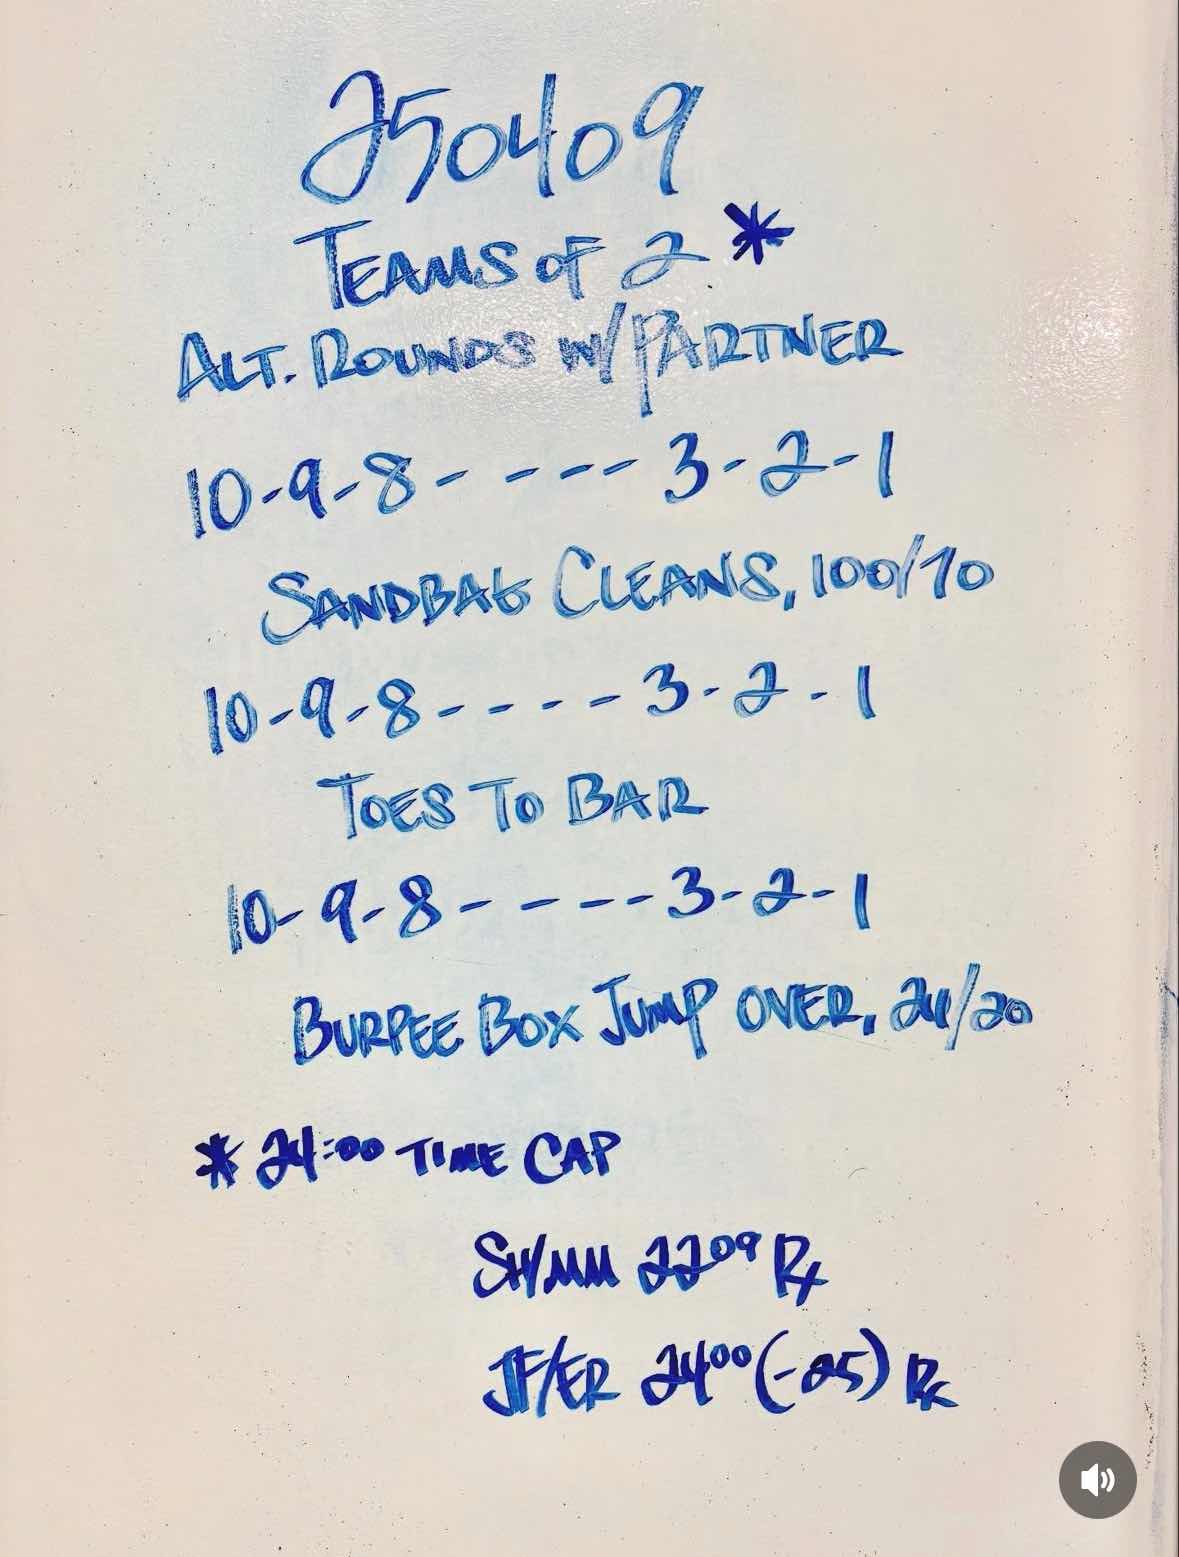 250409
TEAMS OF 2 *
ALT. ROUNDS W/ PARTNER
10-9-8-----3-2-1
SANDBAG CLEANS, 100/70
10-9-8-----3-2-1
TOES TO BAR
10-9-8-----3-2-1
BURPEE BOX JUMP OVER, 24/20
* 24:00 TIME CAP
SH/MM 22⁰⁹ Rx
JF/ER 24⁰⁰ (-25) Rx